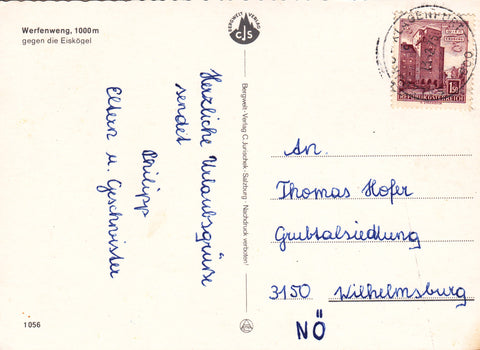 Werfenweng, 1000 m
gegen die Eiskögel
BERGWELT VERLAG
CJS
Herzliche Urlaubsgrüße
sendet
Philipp
Eltern u. Geschwister
Bergwelt-Verlag C. Jurischek · Salzburg · Nachdruck verboten!
KLAGENFURT
1.50
An.
Thomas Hofer
Grubtalsiedlung
3150 Wilhelmsburg
NÖ
1056